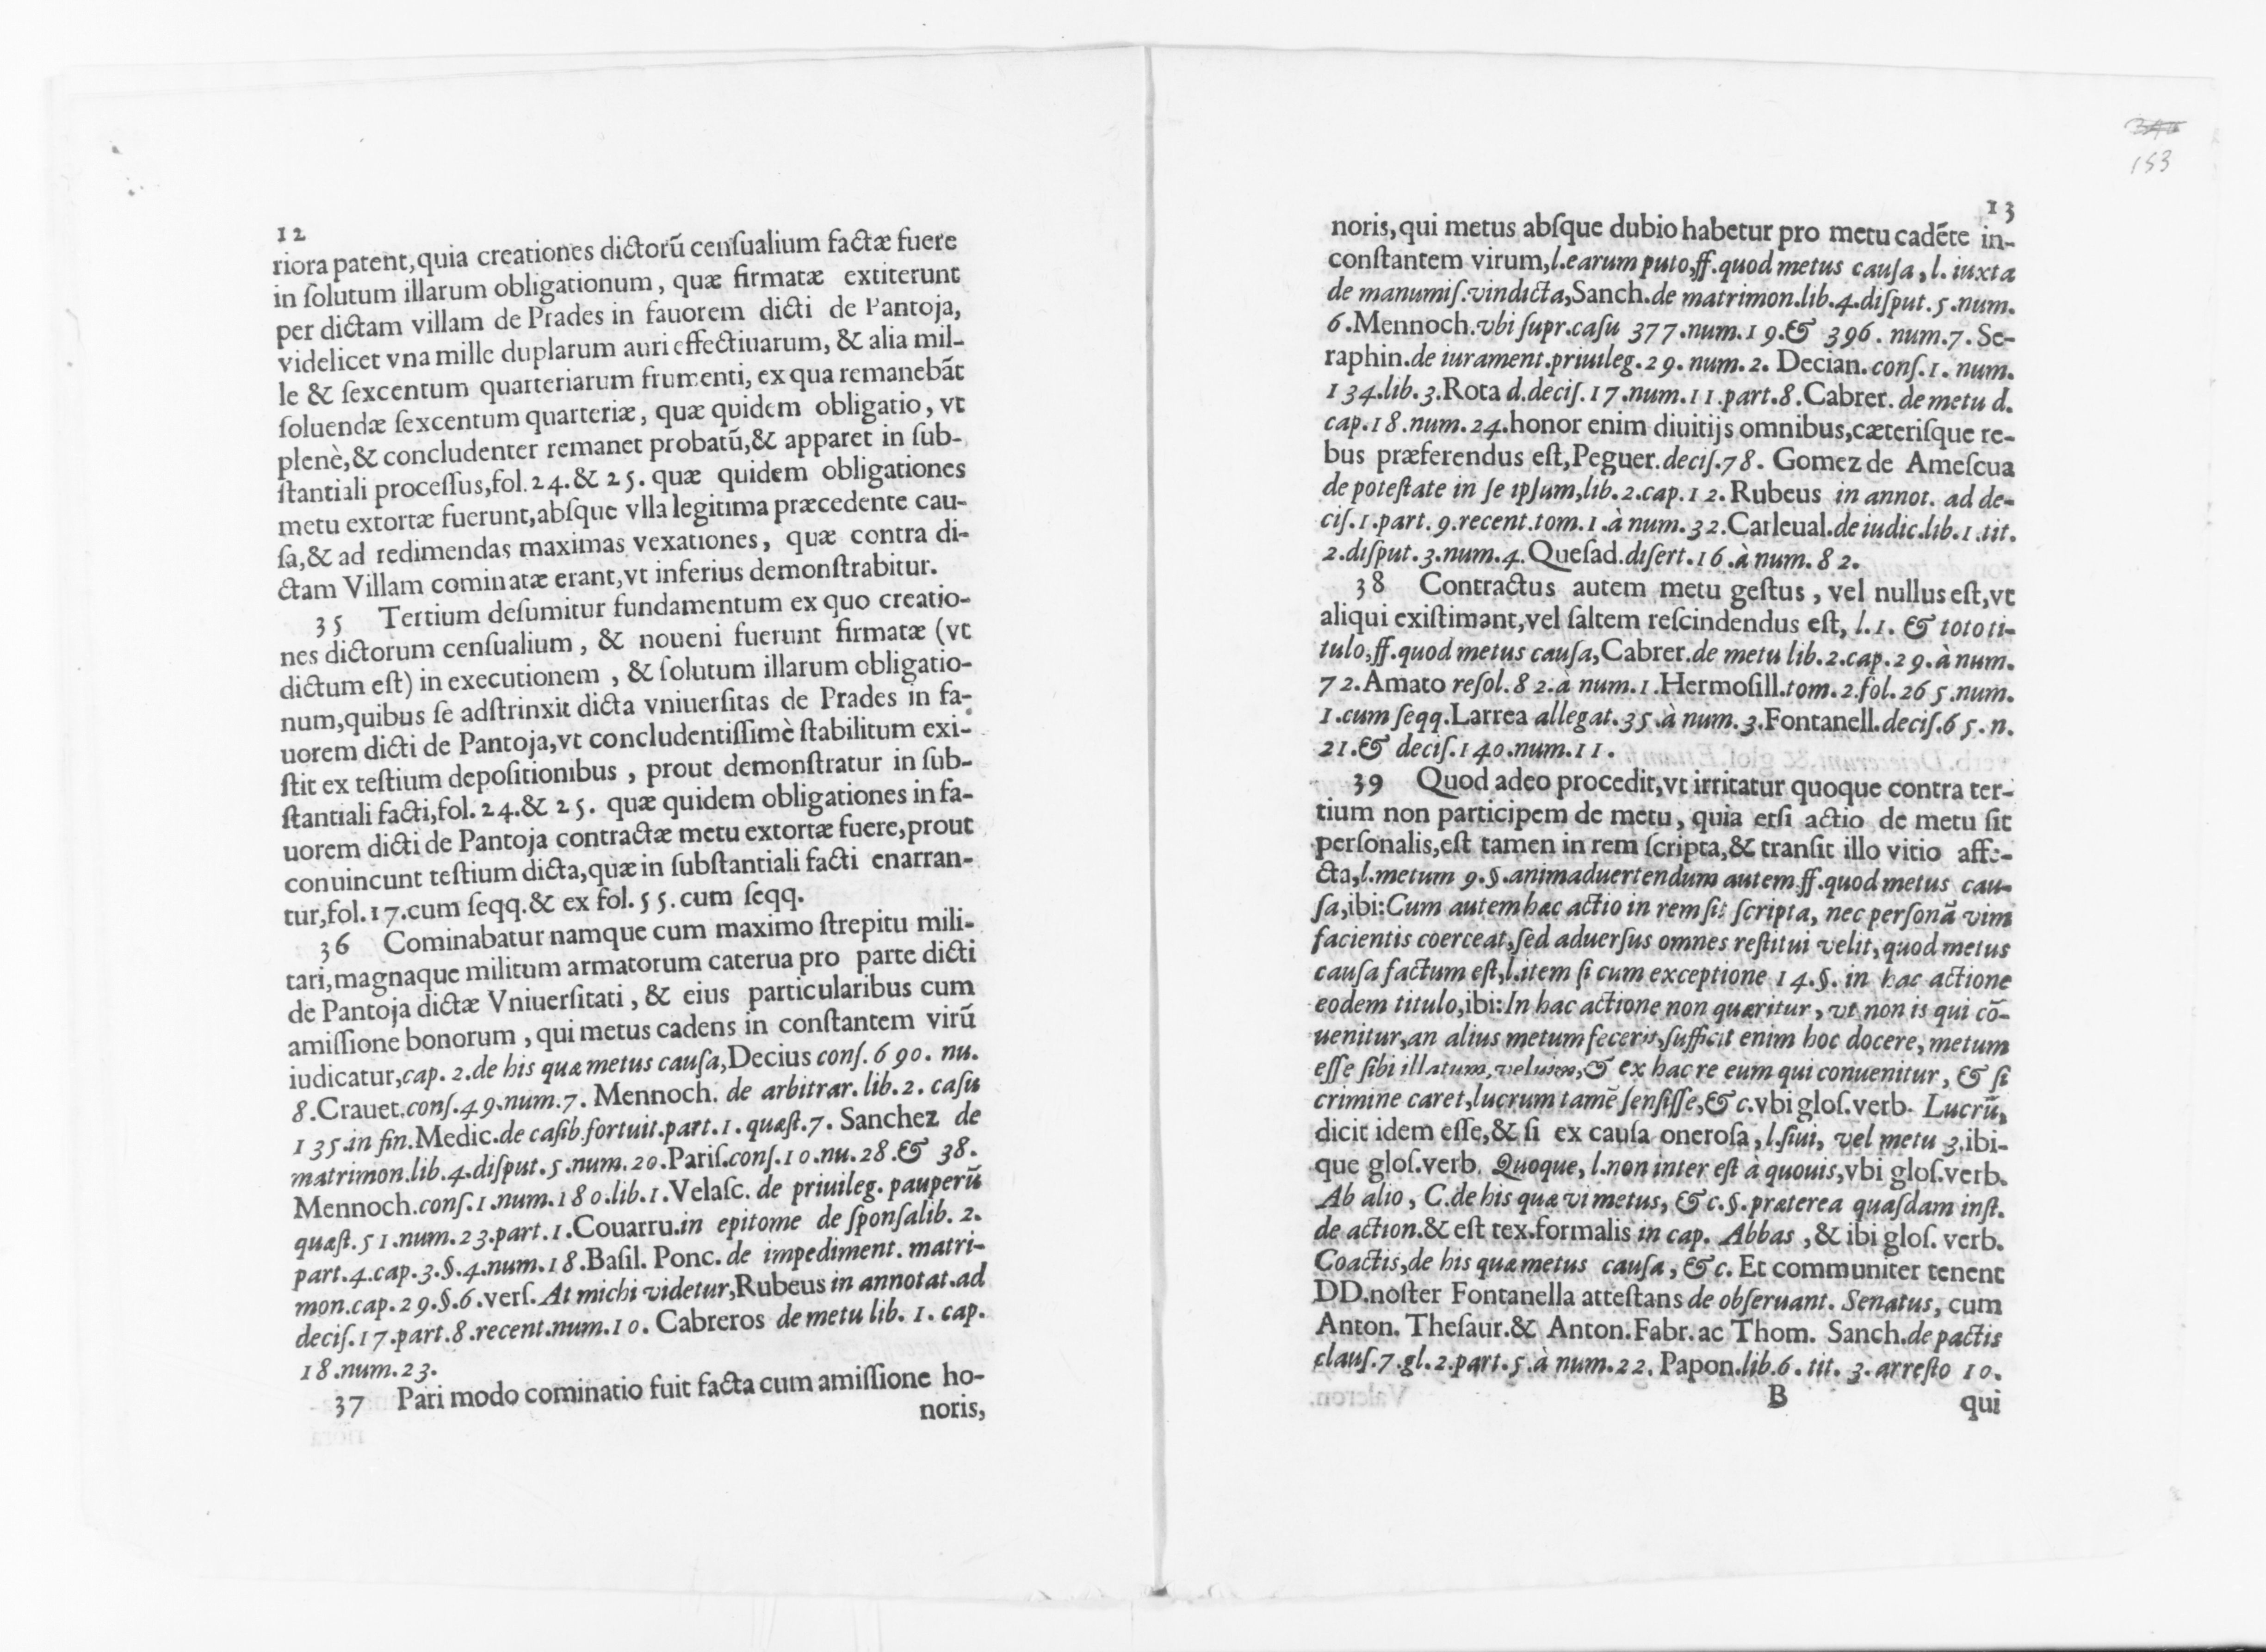 12
riora patent,quia creationes dictorũ cenſualium factæ fuere
in ſolutum illarum obligationum, quæ firmatæ extiterunt
per dictam villam de Prades in fauorem dicti de Pantoja,
videlicet vna mille duplarum auri effectiuarum, & alia mil-
le & ſexcentum quarteriarum frumenti, ex qua remanebãt
ſoluendæ ſexcentum quarteriæ, quæ quidem obligatio, vt
plenè,& concludenter remanet probatũ,& apparet in ſub-
ſtantiali proceſſus,fol.24.& 25. quæ quidem obligationes
metu extortæ fuerunt,abſque vlla legitima præcedente cau-
ſa,& ad redimendas maximas vexationes, quæ contra di-
ctam Villam cominatæ erant,vt inferius demonſtrabitur.
35 Tertium deſumitur fundamentum ex quo creatio-
nes dictorum cenſualium, & noueni fuerunt firmatæ (vt
dictum eſt) in executionem, & ſolutum illarum obligatio-
num,quibus ſe adſtrinxit dicta vniuerſitas de Prades in fa-
uorem dicti de Pantoja,vt concludentiſſimè ſtabilitum exi-
ſtit ex teſtium depoſitionibus, prout demonſtratur in ſub-
ſtantiali facti,fol.24.& 25. quæ quidem obligationes in fa-
uorem dicti de Pantoja contractæ metu extortæ fuere,prout
conuincunt teſtium dicta,quæ in ſubſtantiali facti enarran-
tur,fol.17.cum ſeqq.& ex fol.55.cum ſeqq.
36 Cominabatur namque cum maximo ſtrepitu mili-
tari,magnaque militum armatorum caterua pro parte dicti
de Pantoja dictæ Vniuerſitati, & eius particularibus cum
amiſſione bonorum, qui metus cadens in conſtantem virũ
iudicatur,cap. 2.de his quæ metus cauſa,Decius conſ.690. nu.
8.Crauet.conſ.49.num.7. Mennoch. de arbitrar. lib.2. caſu
135.in fin.Medic.de caſib.fortuit.part.1.quæſt.7. Sanchez de
matrimon.lib.4.diſput.5.num.20.Pariſ.conſ.10.nu.28.& 38.
Mennoch.conſ.1.num.180.lib.1.Velaſc. de priuileg. pauperũ
quæſt.51.num.23.part.1.Couarru.in epitome de ſponſalib. 2.
part.4.cap.3.§.4.num.18.Baſil. Ponc. de impediment. matri-
mon.cap.29.§.6.verſ. At michi videtur,Rubeus in annotat.ad
deciſ.17.part.8.recent.num.10. Cabreros de metu lib. 1. cap.
18.num.23.
37 Pari modo cominatio fuit facta cum amiſſione ho-
noris,
153
13
noris,qui metus abſque dubio habetur pro metu cadẽte in-
conſtantem virum,l.earum puto,ff.quod metus cauſa, l. iuxta
de manumiſ.vindicta,Sanch.de matrimon.lib.4.diſput.5.num.
6.Mennoch.vbi ſupr.caſu 377.num.19.& 396. num.7. Se-
raphin.de iurament.priuileg.29.num.2. Decian.conſ.1. num.
134.lib.3.Rota d.deciſ.17.num.11.part.8.Cabrer. de metu d.
cap.18.num.24.honor enim diuitijs omnibus,cæteriſque re-
bus præferendus eſt,Peguer.deciſ.78. Gomez de Ameſcua
de poteſtate in ſe ipſum,lib.2.cap.12.Rubeus in annot. ad de-
ciſ.1.part.9.recent.tom.1.à num.32.Carleual.de iudic.lib.1.tit.
2.diſput.3.num.4.Queſad.diſert.16.à num.82.
38 Contractus autem metu geſtus, vel nullus eſt,vt
aliqui exiſtimant,vel ſaltem reſcindendus eſt, l.1. & toto ti-
tulo,ff.quod metus cauſa,Cabrer.de metu lib.2.cap.29.à num.
72.Amato reſol.82.à num.1.Hermoſill.tom.2.fol.265.num.
1.cum ſeqq.Larrea allegat.35.à num.3.Fontanell.deciſ.65.n.
21.& deciſ.140.num.11.
39 Quod adeo procedit,vt irritatur quoque contra ter-
tium non participem de metu, quia etſi actio de metu ſit
perſonalis,eſt tamen in rem ſcripta,& tranſit illo vitio affe-
cta,l.metum 9.§.animaduertendum autem ff.quod metus cau-
ſa,ibi:Cum autem hac actio in rem ſit ſcripta, nec perſonã vim
facientis coerceat,ſed aduerſus omnes reſtitui velit,quod metus
cauſa factum eſt,l.item ſi cum exceptione 14.§. in hac actione
eodem titulo,ibi:In hac actione non quæritur, vt non is qui cõ-
uenitur,an alius metum fecerit,ſufficit enim hoc docere,metum
eſſe ſibi illatum, & ex hac re eum qui conuenitur, & ſi
crimine caret,lucrum tamẽ ſenſiſſe,&c.vbi gloſ.verb. Lucrũ,
dicit idem eſſe,& ſi ex cauſa oneroſa, l.ſiui, vel metu 3.ibi-
que gloſ.verb. Quoque, l.non intereſt à quouis,vbi gloſ.verb.
Ab alio, C.de his quæ vi metus, &c.§.præterea quaſdam inſt.
de action.& eſt tex.formalis in cap. Abbas, & ibi gloſ. verb.
Coactis,de his quæ metus cauſa, &c. Et communiter tenent
DD.noſter Fontanella atteſtans de obſeruant. Senatus, cum
Anton. Theſaur.& Anton.Fabr.ac Thom. Sanch.de pactis
clauſ.7.gl.2.part.5.à num.22. Papon.lib.6.tit. 3.arreſto 10.
B qui